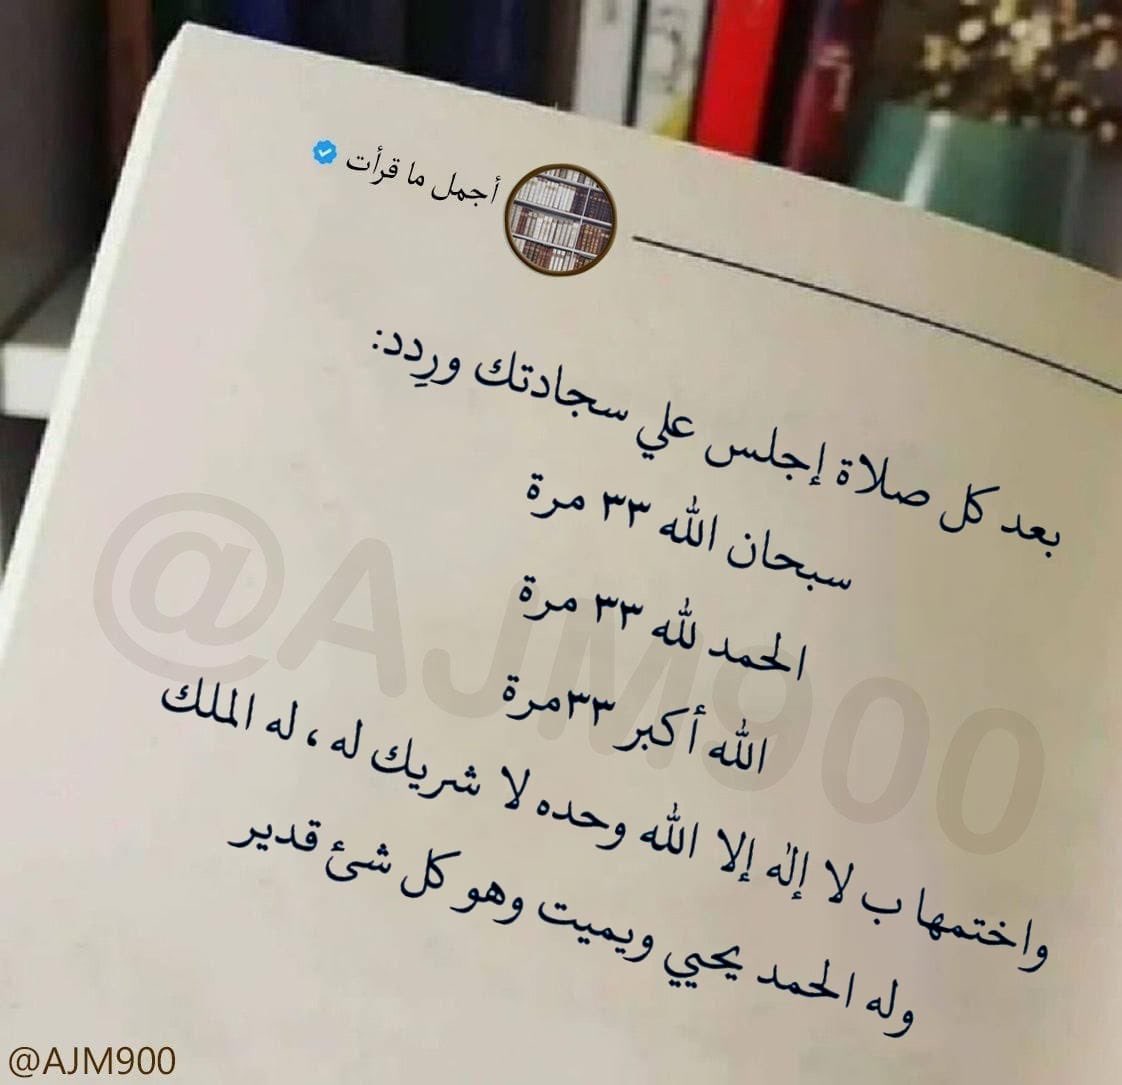 أجمل ما قرأت
بعد كل صلاة إجلس علي سجادتك ورِدد:
سبحان الله ٣٣ مرة
الحمد لله ٣٣ مرة
الله أكبر ٣٣مرة
واختمها ب لا إله إلا الله وحده لا شريك له ، له الملك
وله الحمد يحيي ويميت وهو كل شئ قدير
@AJM900
@AJM900